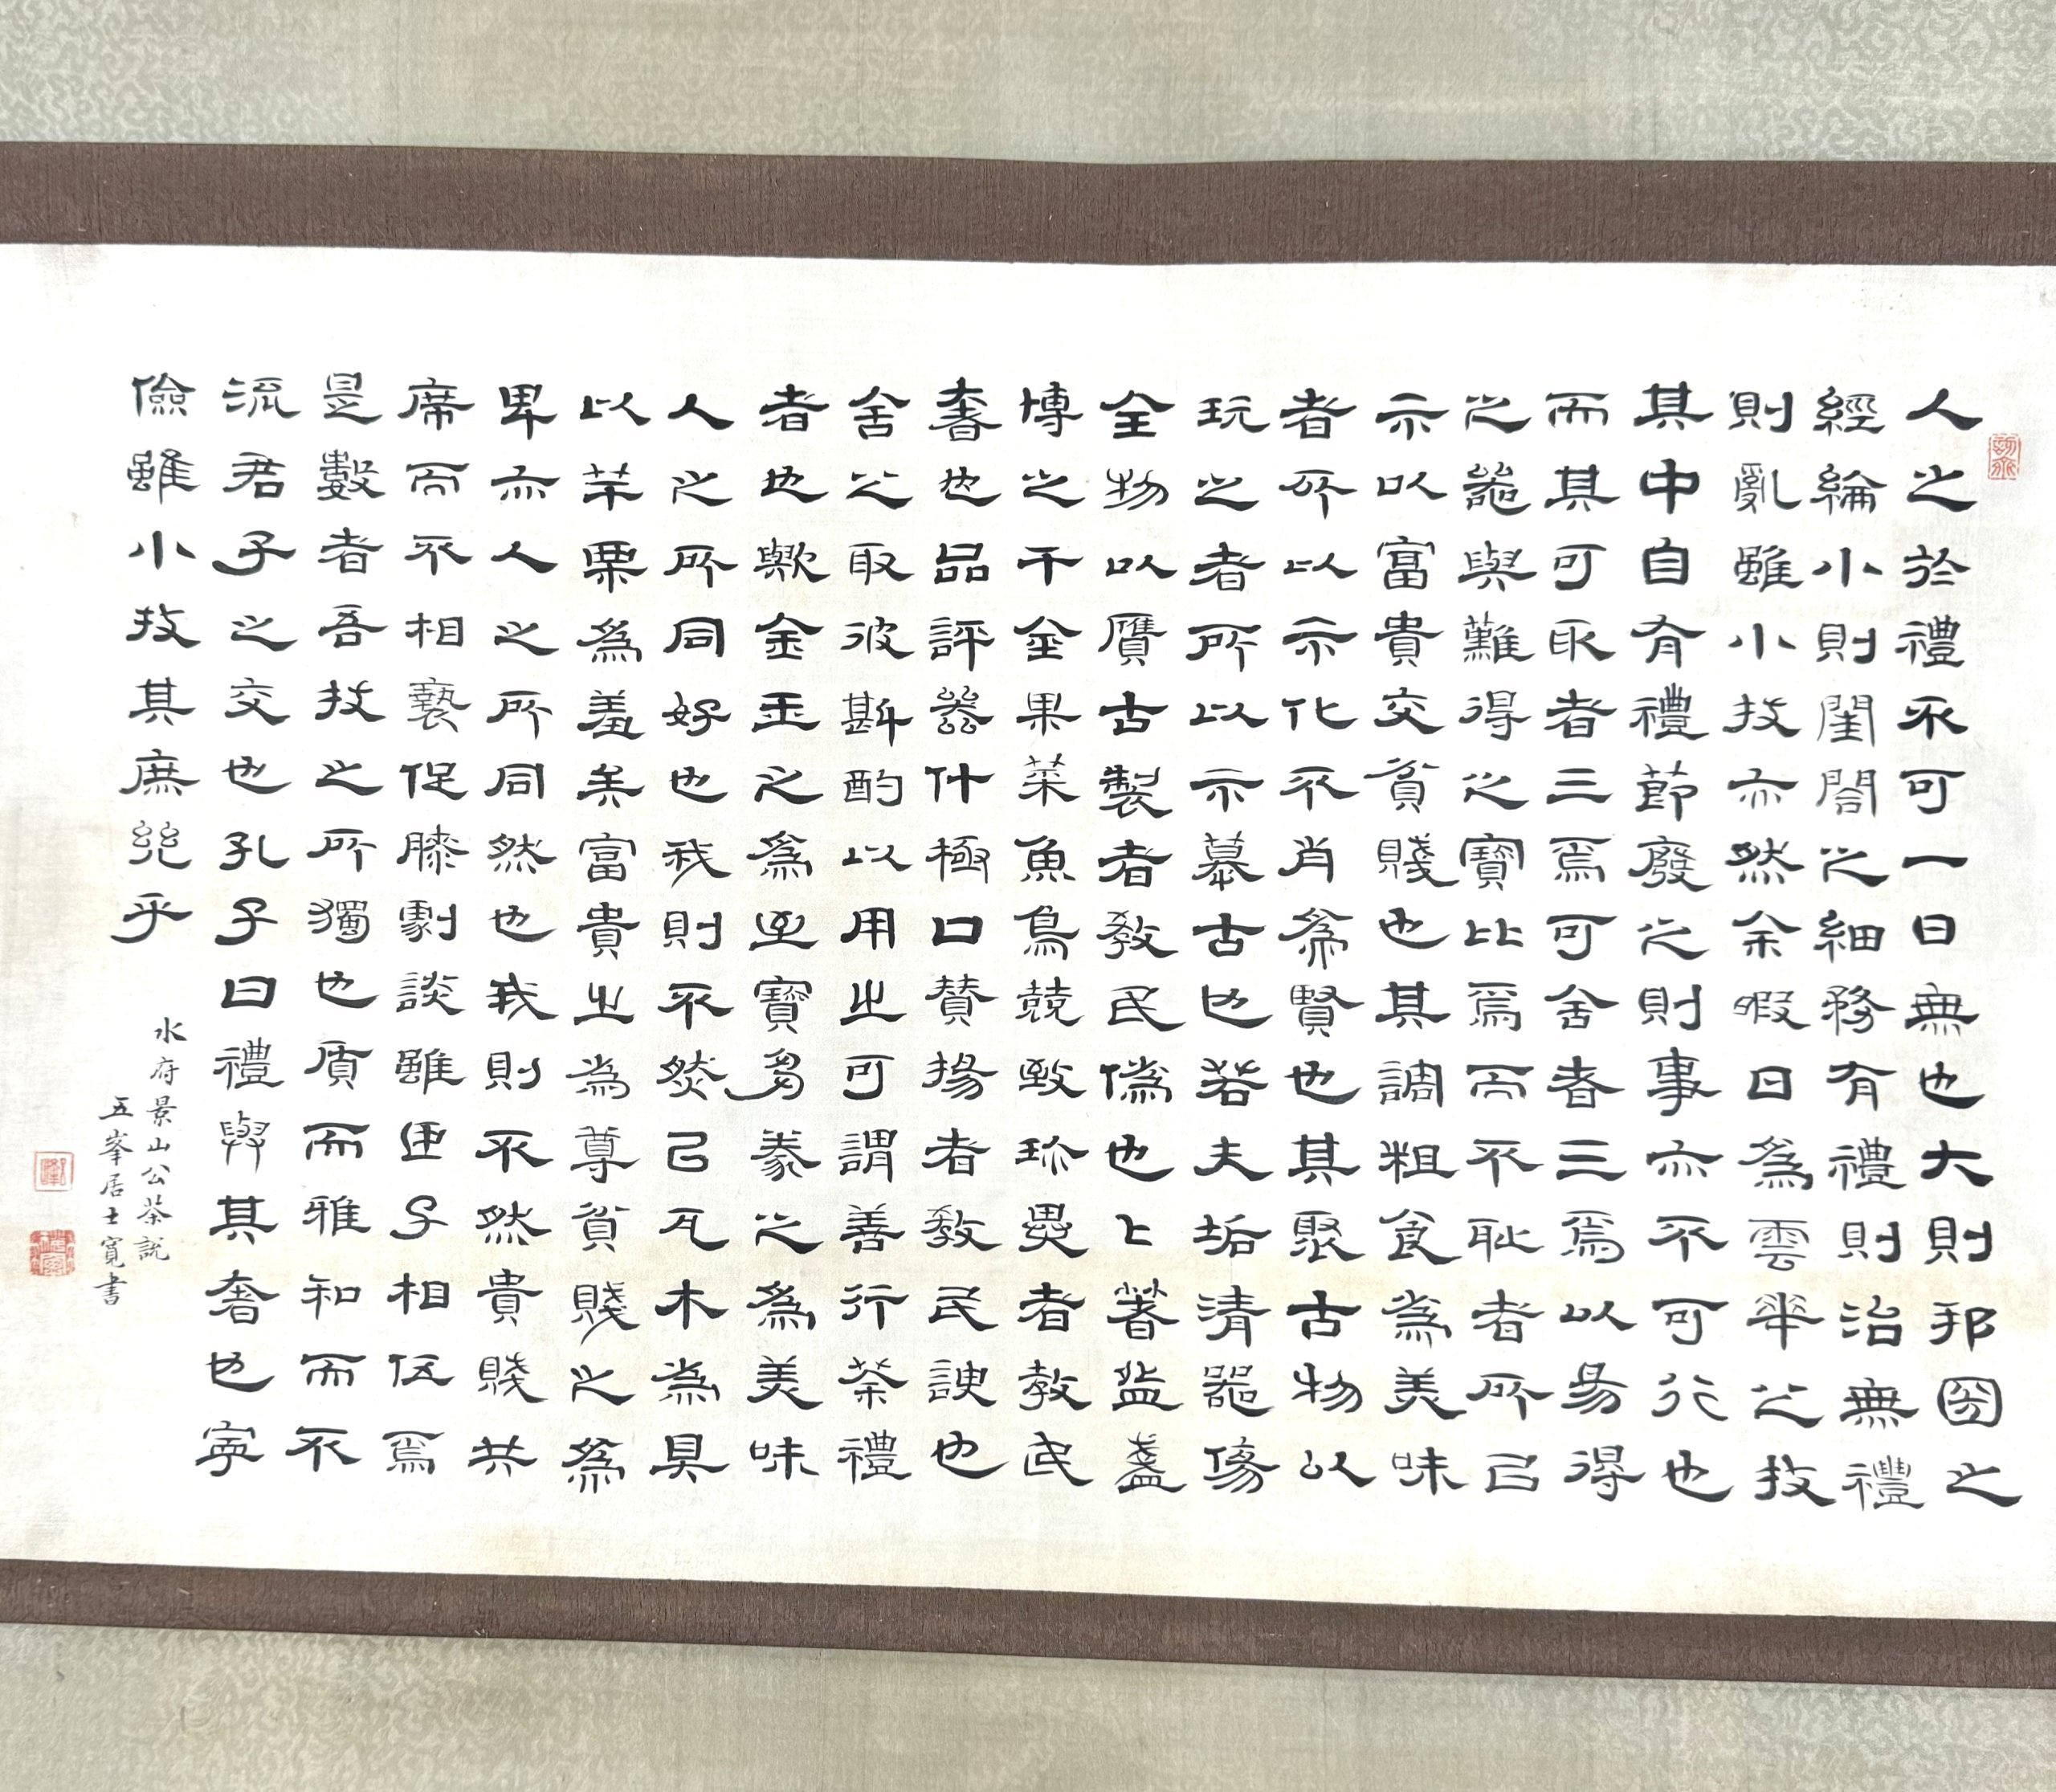 人之於禮不可一日無也大則邦國之
經綸小則閨閤之細務有禮則治無禮
則亂雖小技亦然余暇日為雲華之技
其中自有禮節廢之則事亦不可行也
而其可取者三焉可舍者三焉以易得
之器與難得之寶比焉而不恥者所已
示以富貴交貧賤也其調粗食為美味
者所以示化不肖為賢也其聚古物以
玩之者所以示慕古也若夫垢清器傷
全物以贋古製者教民偽也上著盆盞
博之千金果菜魚鳥競致珍異者教民
奢也品評器什極口贊揚者教民諛也
舍之取彼斟酌以用之可謂善行茶禮
者也歟金玉之為至寶芻豢之為美味
人之所同好也我則不然已瓦木為具
以芋栗為羞美富貴之為尊貧賤之為
卑亦人之所同然也我則不然貴賤共
席而不相褻促膝劇談雖迕子相伍焉
是數者吾技之所獨也質而雅和而不
流君子之交也孔子曰禮與其奢也寧
儉雖小技其庶幾乎
水府景山公茶說
五峯居士寬書